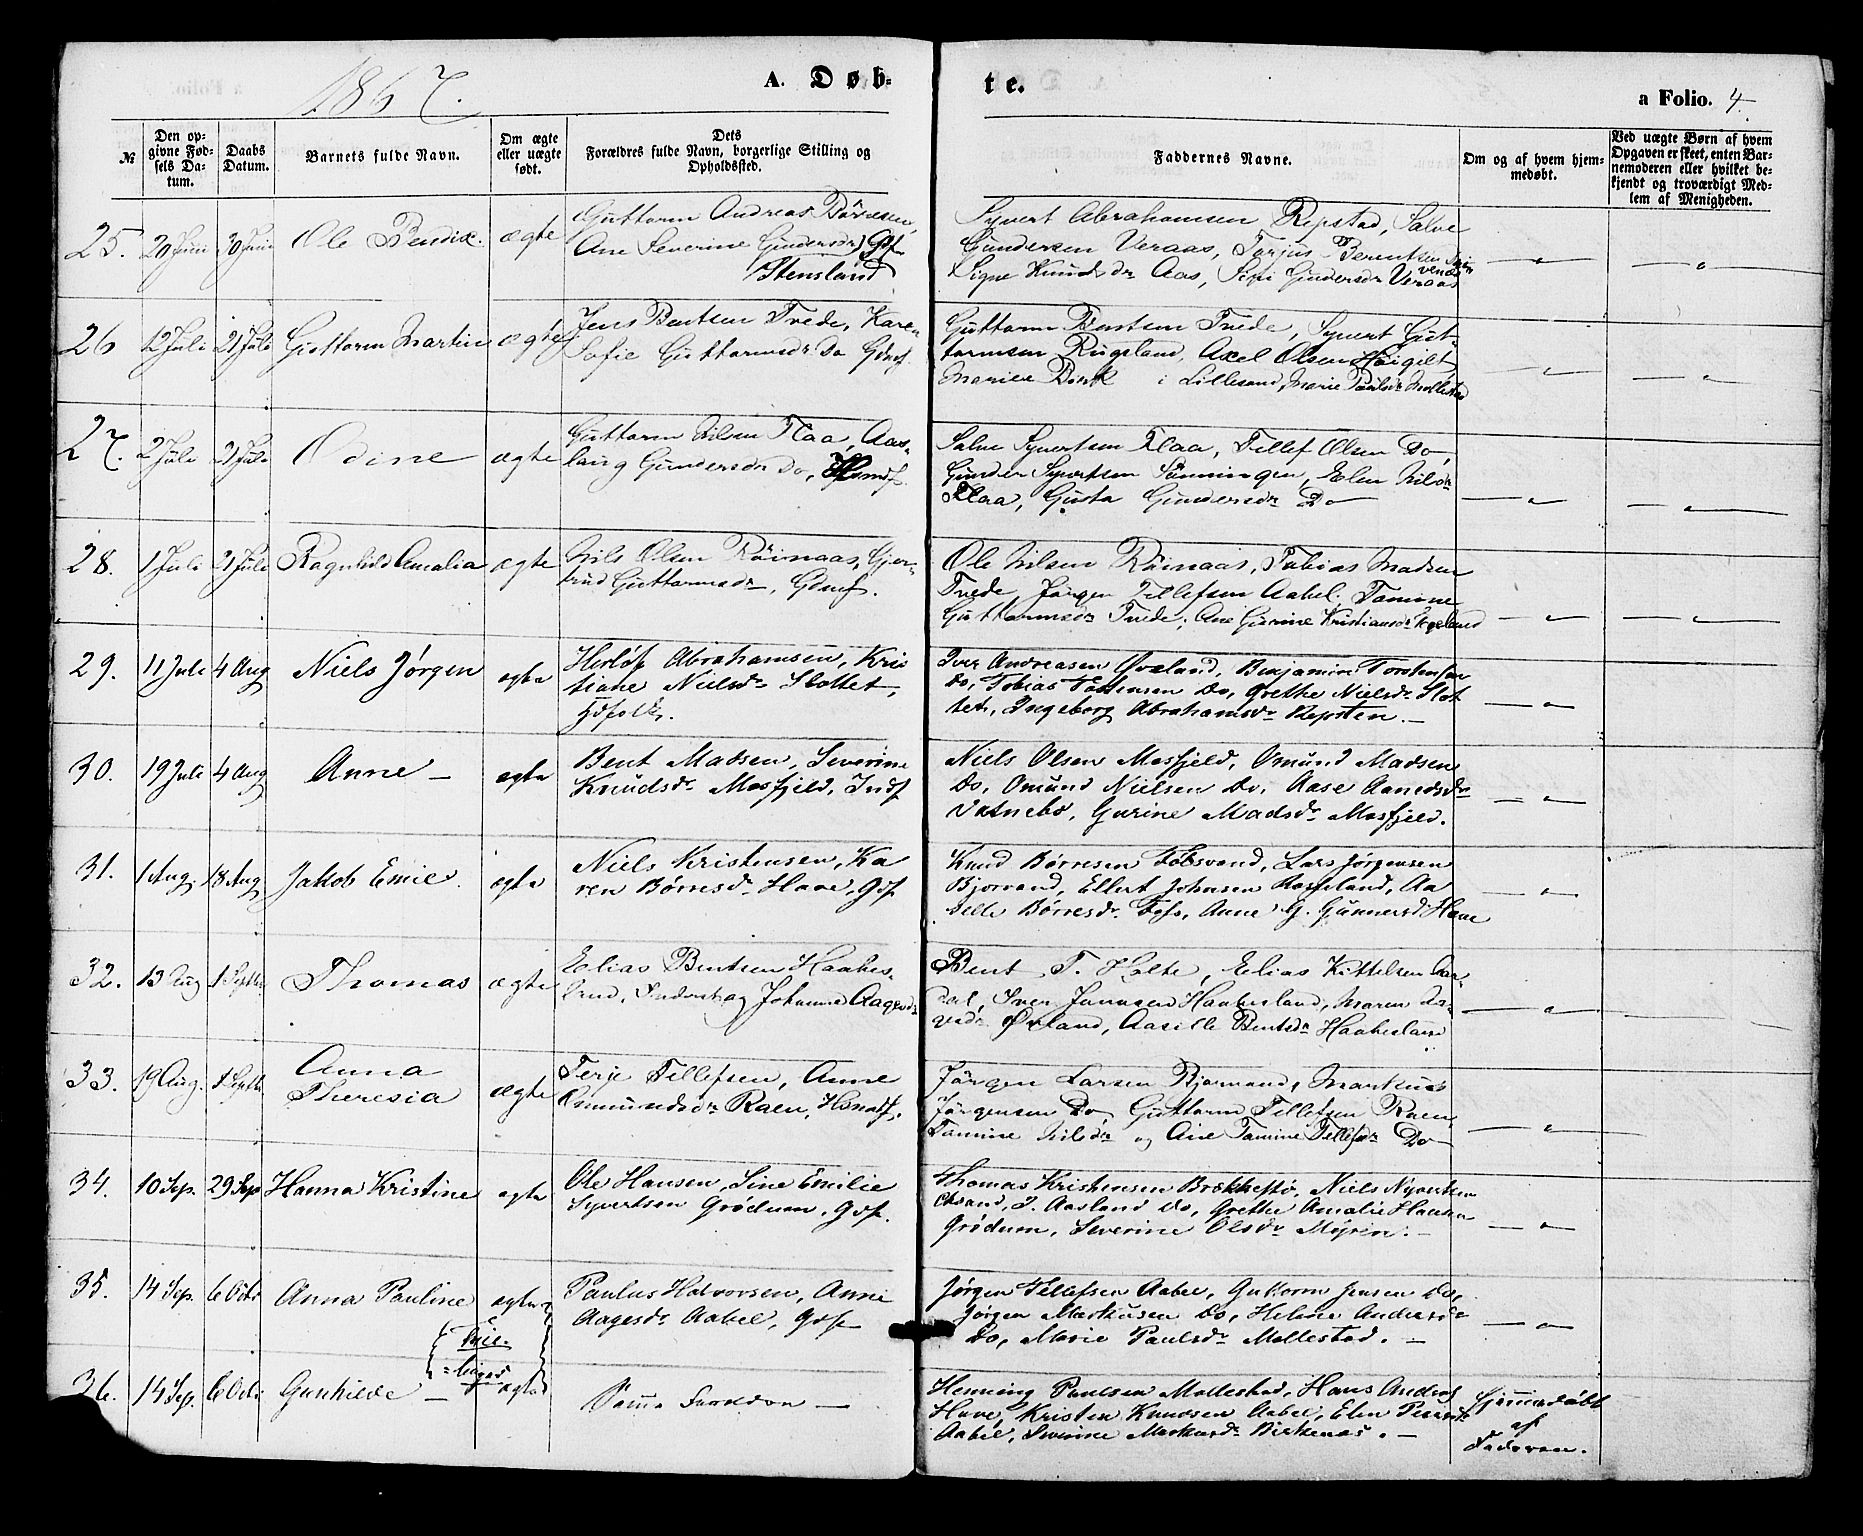 1867.
A. Døb-
te.
a Folio. 4.
№
Den op-
givne Fød-
sels Da-
tum.
Daabs
Datum.
Barnets fulde Navn.
Om ægte
eller uægte
født.
Dets
Forældres fulde Navn, borgerlige Stilling og
Opholdssted.
Faddernes Navne.
Om og af hvem hjem-
medøbt.
Ved uægte Børn af hvem
Opgaven er skeet, enten Bar-
nemoderen eller hvilket be-
kjendt og troværdigt Med-
lem af Menigheden.
25. 20 Juni 30 Juni Ole Bendix. ægte
Guttorm Andreas
Ane Severine Gundersdr
Stensland
Syvert Abrahamsen Repstad, Salve
Gundersen Veraas, Terjus Berentsen
Signe Knudsdr Aas, Sifi Gundersdr Veraas
26 12 Juli 21 Juli Guttorm Martin ægte
Jens Bentsen Tvede, Karen
Sofie Guttormsdr Do Gdmf.
Guttorm Bentsen Tvede, Syvert Gut-
tormsen Rugsland, Axel Olsen
i Lillesand, Marie Paulsdr Mollestad
27. 2 Juli 21 Juli Odine ægte
Guttorm Nilsen Flaa, Aas-
laug Gundersdr Do, Hsmdf.
Salve Syvertsen Flaa, Tellef Olsen Do,
Gunder Syvertsen Elen Nilsdr
Flaa, Gusta Gundersdr Do
28. 1 Juli 21 Juli Ragnhild Amalia ægte
Nils Olsen Röinaas, Gjer-
trud Guttormsdr, Gdmf.
Ole Nilsen Röinaas, Tobias Madsen
Tvede, Jörgen Tellefsen Aabel. Tomine
Guttormsdr Tvede, Ane Gurine Kristiansdr
29. 11 Juli 4 Aug Niels Jørgen ægte
Herlöf Abrahamsen, Kris
tiane Nielsdr Slottet,
Gdfolk.
Iver Andreasen Øvland, Benjamin Torstensen
Do, Tobias Do, Grethe Nielsdr Slot
tet, Ingeborg Abrahamsdr Repsten. —
30. 19 Juli 4 Aug Anne — ægte
Bent Madsen, Severine
Knudsdr Mosfjeld, Indf
Niels Olsen Mosfjeld, Omund Madsen
Do, Omund Nielsen Do, Aase Aanedsdr
Vatnebo, Gurine Madsdr Mosfjeld.
31. 1 Aug. 18 Aug Jakob Emil. ægte
Niels Kristensen, Ka
ren Börresdr Have, Gdf
Knud Børresen Lars Jørgensen
Bjorvand, Ellert Johnsen Aa
sille Børresdr Anne G. Gunnersdr Have
32. 13 Aug 1 Septbr Thomas ægte
Elias Bentsen Haabes-
land, Johanne Aagesdr
Bent T. Holte, Elias Kittelsen Aar
dal, Iver Jensen Haabesland, Maren
Øvland, Aasille Bentsdr Haabesland
33. 19 Aug. 1 Septbr Anna
Theresia ægte
Terje Tellefsen, Anne
Omundsdr Raen, Hsmdf.
Jörgen Larsen Bjorvand, Markus
Jörgensen Do Guttorm Tellefsen Raen
Tomine Nilsdr og Ane Tomine Tellefsdr Do
34. 10 Sep. 29 Sep Hanna Kristine ægte
Ole Hansen, Sine Emilie
Syvertsen Grödum, Gdf.
Thomas Kristensen Brækkestö, Niels Syvertsen
Aasland Do, Grethe Amalie Hansen
Grödum, Severine Olsdr Möyrin. —
35. 14 Sep. 6 Octr Anna Pauline ægte
Tvil-
linger
Paulus Halvorsen, Anne
Aagesdr Aabel, Gdf
Jörgen Tellefsen Aabel, Guttorm Jensen Do,
Jörgen Markusen Do, Helene Andersdr
Do, Marie Paulsdr Mollestad. —
36. 14 Sep. 6 Octr Gunhilde — ægte
Samme Forældre —
Henning Paulsen Mollestad, Hans Anders
Have, Kristen Knudsen Aabel, Elen
Aabel, Severine Markusdr Birkenes. —
Hjemmedöbt
af
Faderen.